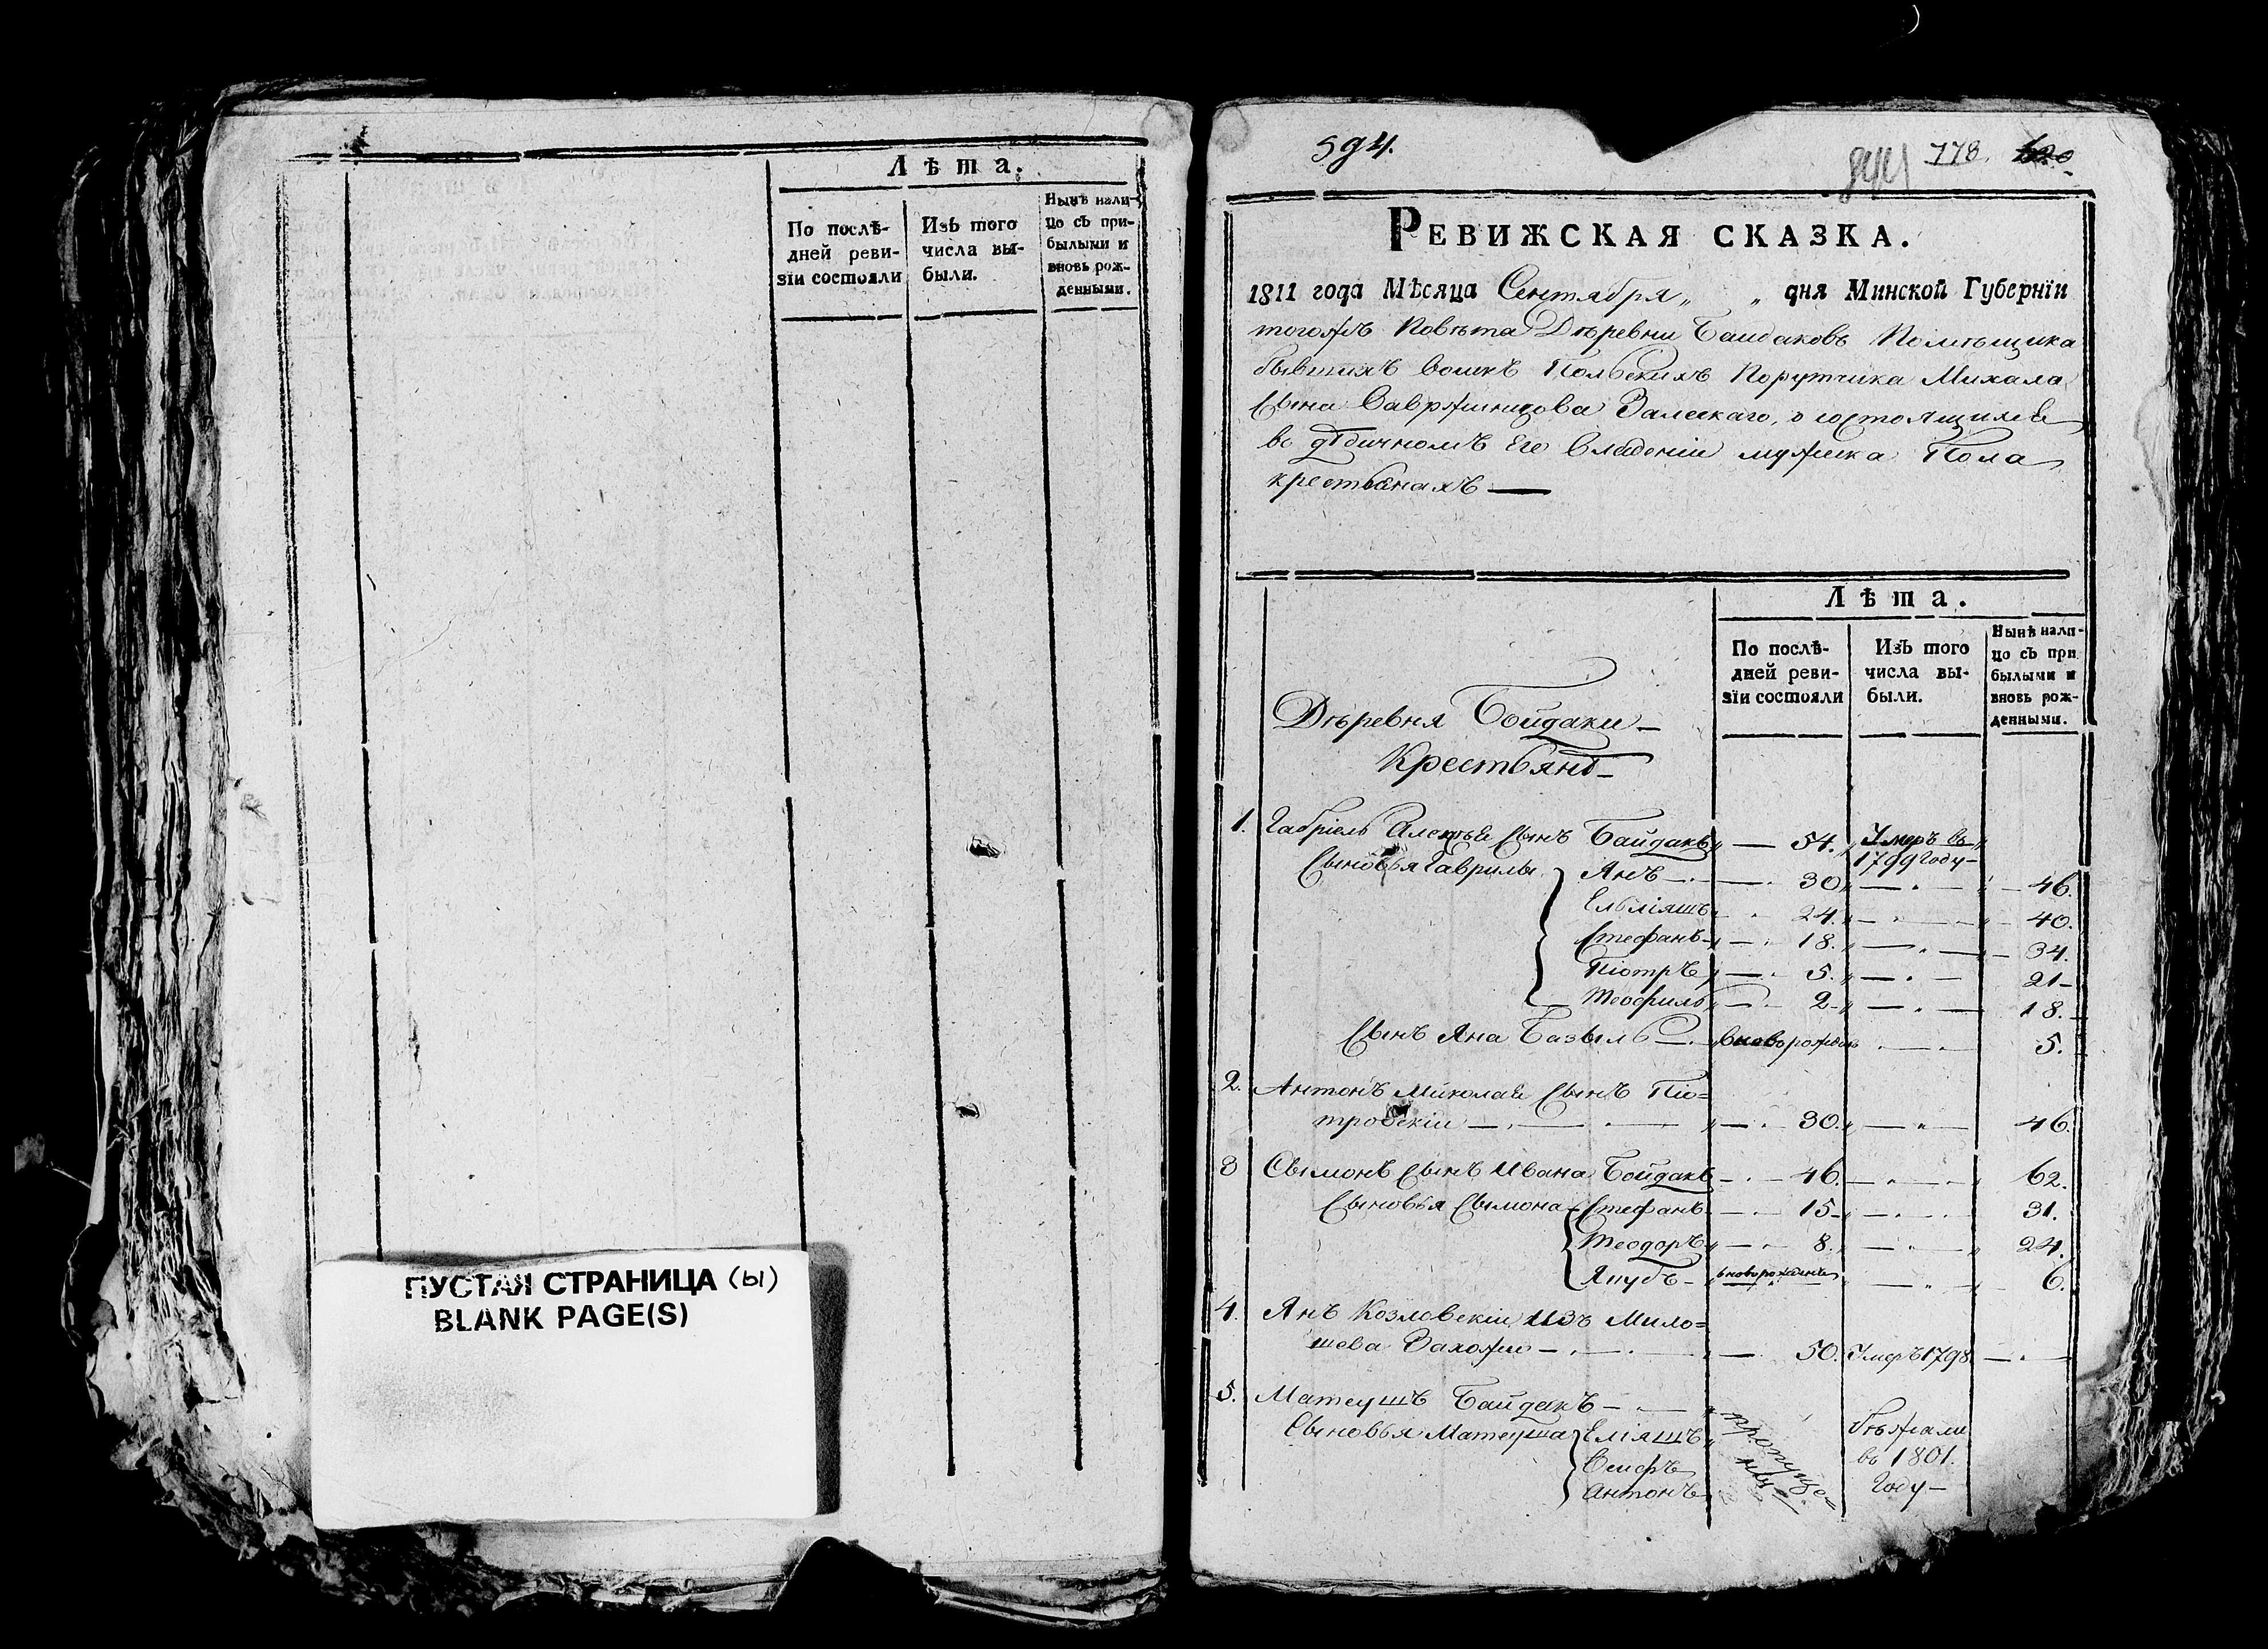 Лѣта.
По послѣ-
дней реви-
зїи состояли
Изъ того
числа вы-
были.
Нынѣ нали-
цо съ при-
былыми и
вновь рож-
денными.
ПУСТАЯ СТРАНИЦА (ы)
BLANK PAGE(S)
594.
778.
РЕВИЖСКАЯ СКАЗКА.
1811 года Мѣсяца Сентября „ „ дня Минской Губернїи
тогожъ Повѣта Дѣревни Баидаковъ Помѣщика
бывшихъ воискъ Польскихъ Порутчика Михала
Сына Вавржинцова Залескаго, о состоящихъ
во дѣдичномъ Его владеніи мужеска Пола
крестьянахъ —
Лѣта.
По послѣ-
дней реви-
зїи состояли
Изъ того
числа вы-
были.
Нынѣ нали-
цо съ при
былыми и
вновь рож-
денными.
Дѣревня Бойдаки —
Крестьянѣ —
1. Габріель Алексѣя Сынъ Байдакъ — 54. Умеръ въ
1799 Году —
Сыновья Гаврилы Янъ — 30 — 46.
Ельяшъ 24. — 40.
Стефанъ — 18. — 34.
Піотръ — 5. — 21 —
Теофиль — 2 — 18.
Сынъ Яна Базыль — вноворожденъ — 5.
2. Антонъ Миколая Сынъ Піо=
тровскіи — 30. — 46.
3 Сымонъ Сынъ Ивана Бойдакъ — 46. — 62.
Сыновья Сымона Стефанъ — 15 — 31.
Теодоръ — 8. — 24.
Якубъ — вноворожденъ — 6.
4. Янъ Козловскіи изъ Мило=
шева Захожи — 50. Умеръ 1798. —
5. Матеушъ Байдакъ —
Сыновья Матеуша Еліяшъ
Антонъ
пропуще=
ны
бѣжали
въ 1801.
Году —